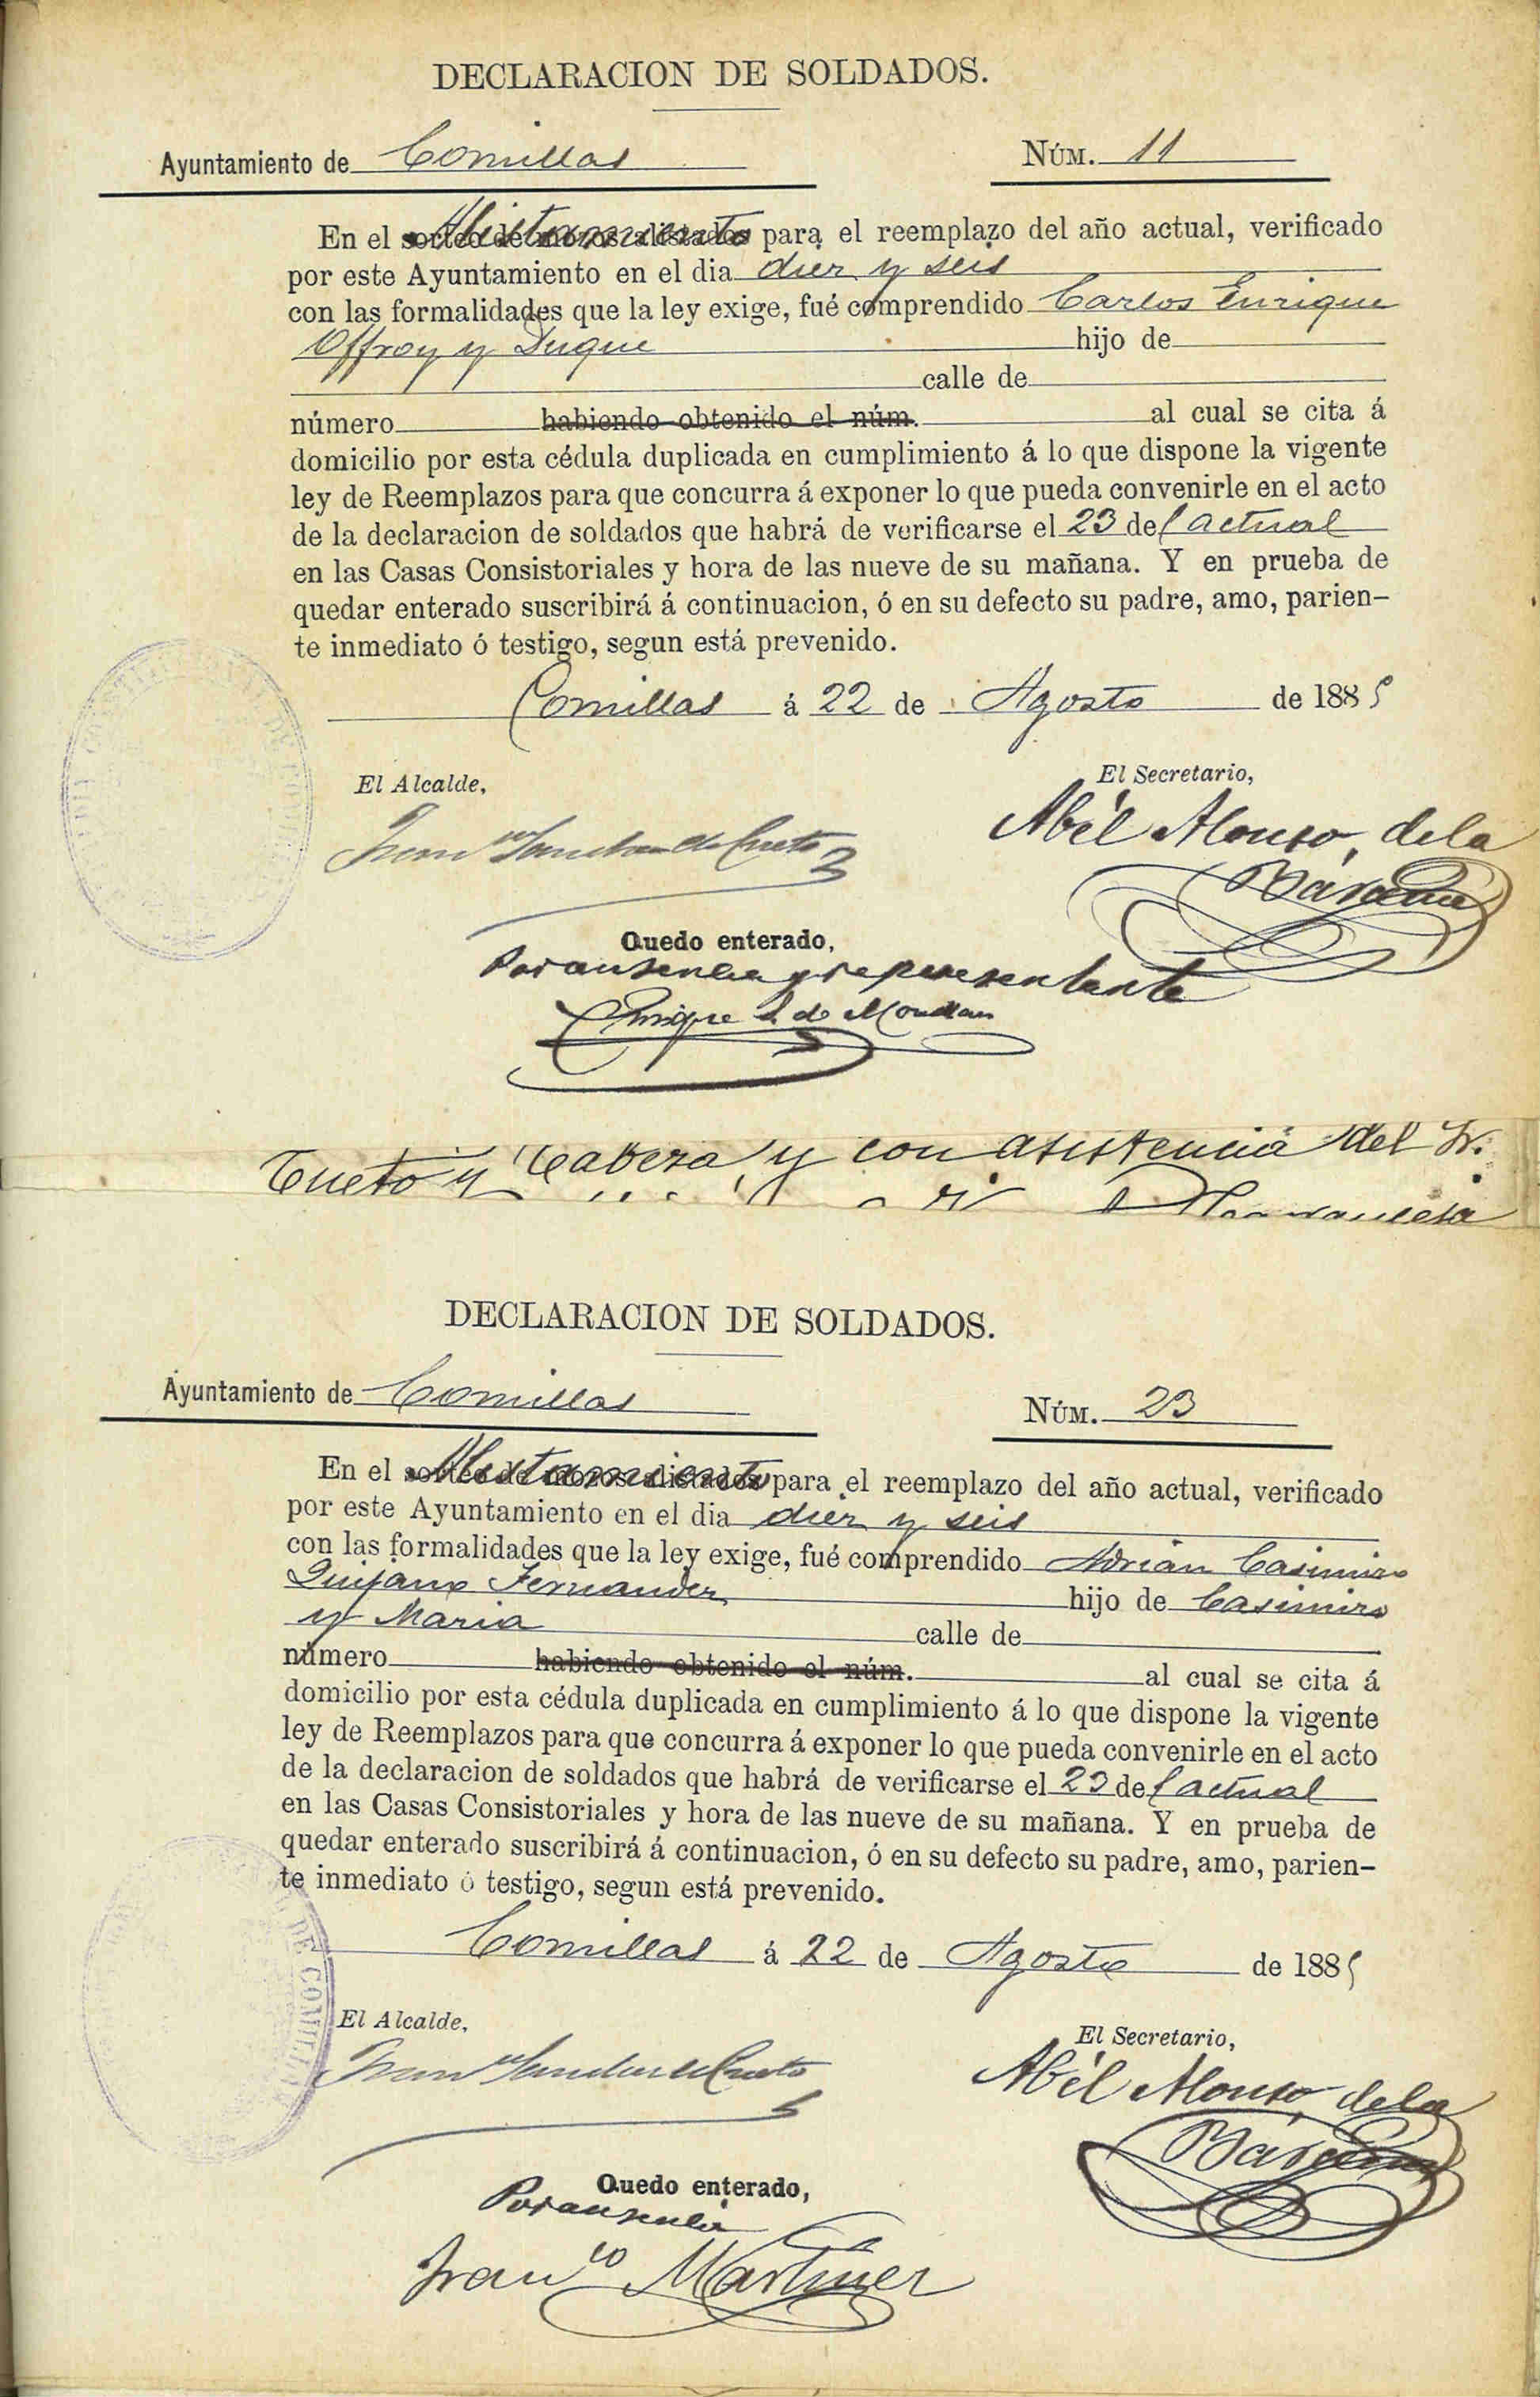 DECLARACION DE SOLDADOS.
Ayuntamiento de Comillas
NÚM. 11
En el sorteo de mozos alistados Alistamiento para el reemplazo del año actual, verificado
por este Ayuntamiento en el dia diez y seis
con las formalidades que la ley exige, fué comprendido Carlos Enrique
Offroy y Duque hijo de
calle de
número habiendo obtenido el núm. al cual se cita á
domicilio por esta cédula duplicada en cumplimiento á lo que dispone la vigente
ley de Reemplazos para que concurra á exponer lo que pueda convenirle en el acto
de la declaracion de soldados que habrá de verificarse el 23 del actual
en las Casas Consistoriales y hora de las nueve de su mañana. Y en prueba de
quedar enterado suscribirá á continuacion, ó en su defecto su padre, amo, parien-
te inmediato ó testigo, segun está prevenido.
Comillas á 22 de Agosto de 1885
El Alcalde,
El Secretario,
Franco Sanchez de Cueto
Abél Alonso, de la
Bárcena
Quedo enterado,
Por ausencia y representante
Enrique
Cueto y Cabeza, y con asistencia del Sr.
DECLARACION DE SOLDADOS.
Ayuntamiento de Comillas
NÚM. 23
En el sorteo de mozos alistados Alistamiento para el reemplazo del año actual, verificado
por este Ayuntamiento en el dia diez y seis
con las formalidades que la ley exige, fué comprendido Adrián Casimiro
Quijano Fernandez hijo de Casimiro
y Maria calle de
número habiendo obtenido el núm. al cual se cita á
domicilio por esta cédula duplicada en cumplimiento á lo que dispone la vigente
ley de Reemplazos para que concurra á exponer lo que pueda convenirle en el acto
de la declaracion de soldados que habrá de verificarse el 23 del actual
en las Casas Consistoriales y hora de las nueve de su mañana. Y en prueba de
quedar enterado suscribirá á continuacion, ó en su defecto su padre, amo, parien-
te inmediato ó testigo, segun está prevenido.
Comillas á 22 de Agosto de 1885
El Alcalde,
El Secretario,
Franco Sanchez de Cueto
Abél Alonso, de la
Bárcena
Quedo enterado,
Por ausencia
Franco Martinez